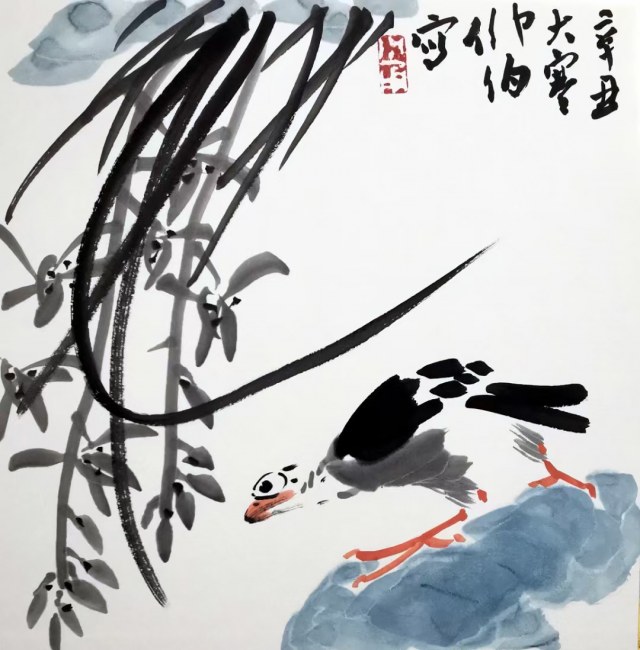 辛丑
大寒
伯
写